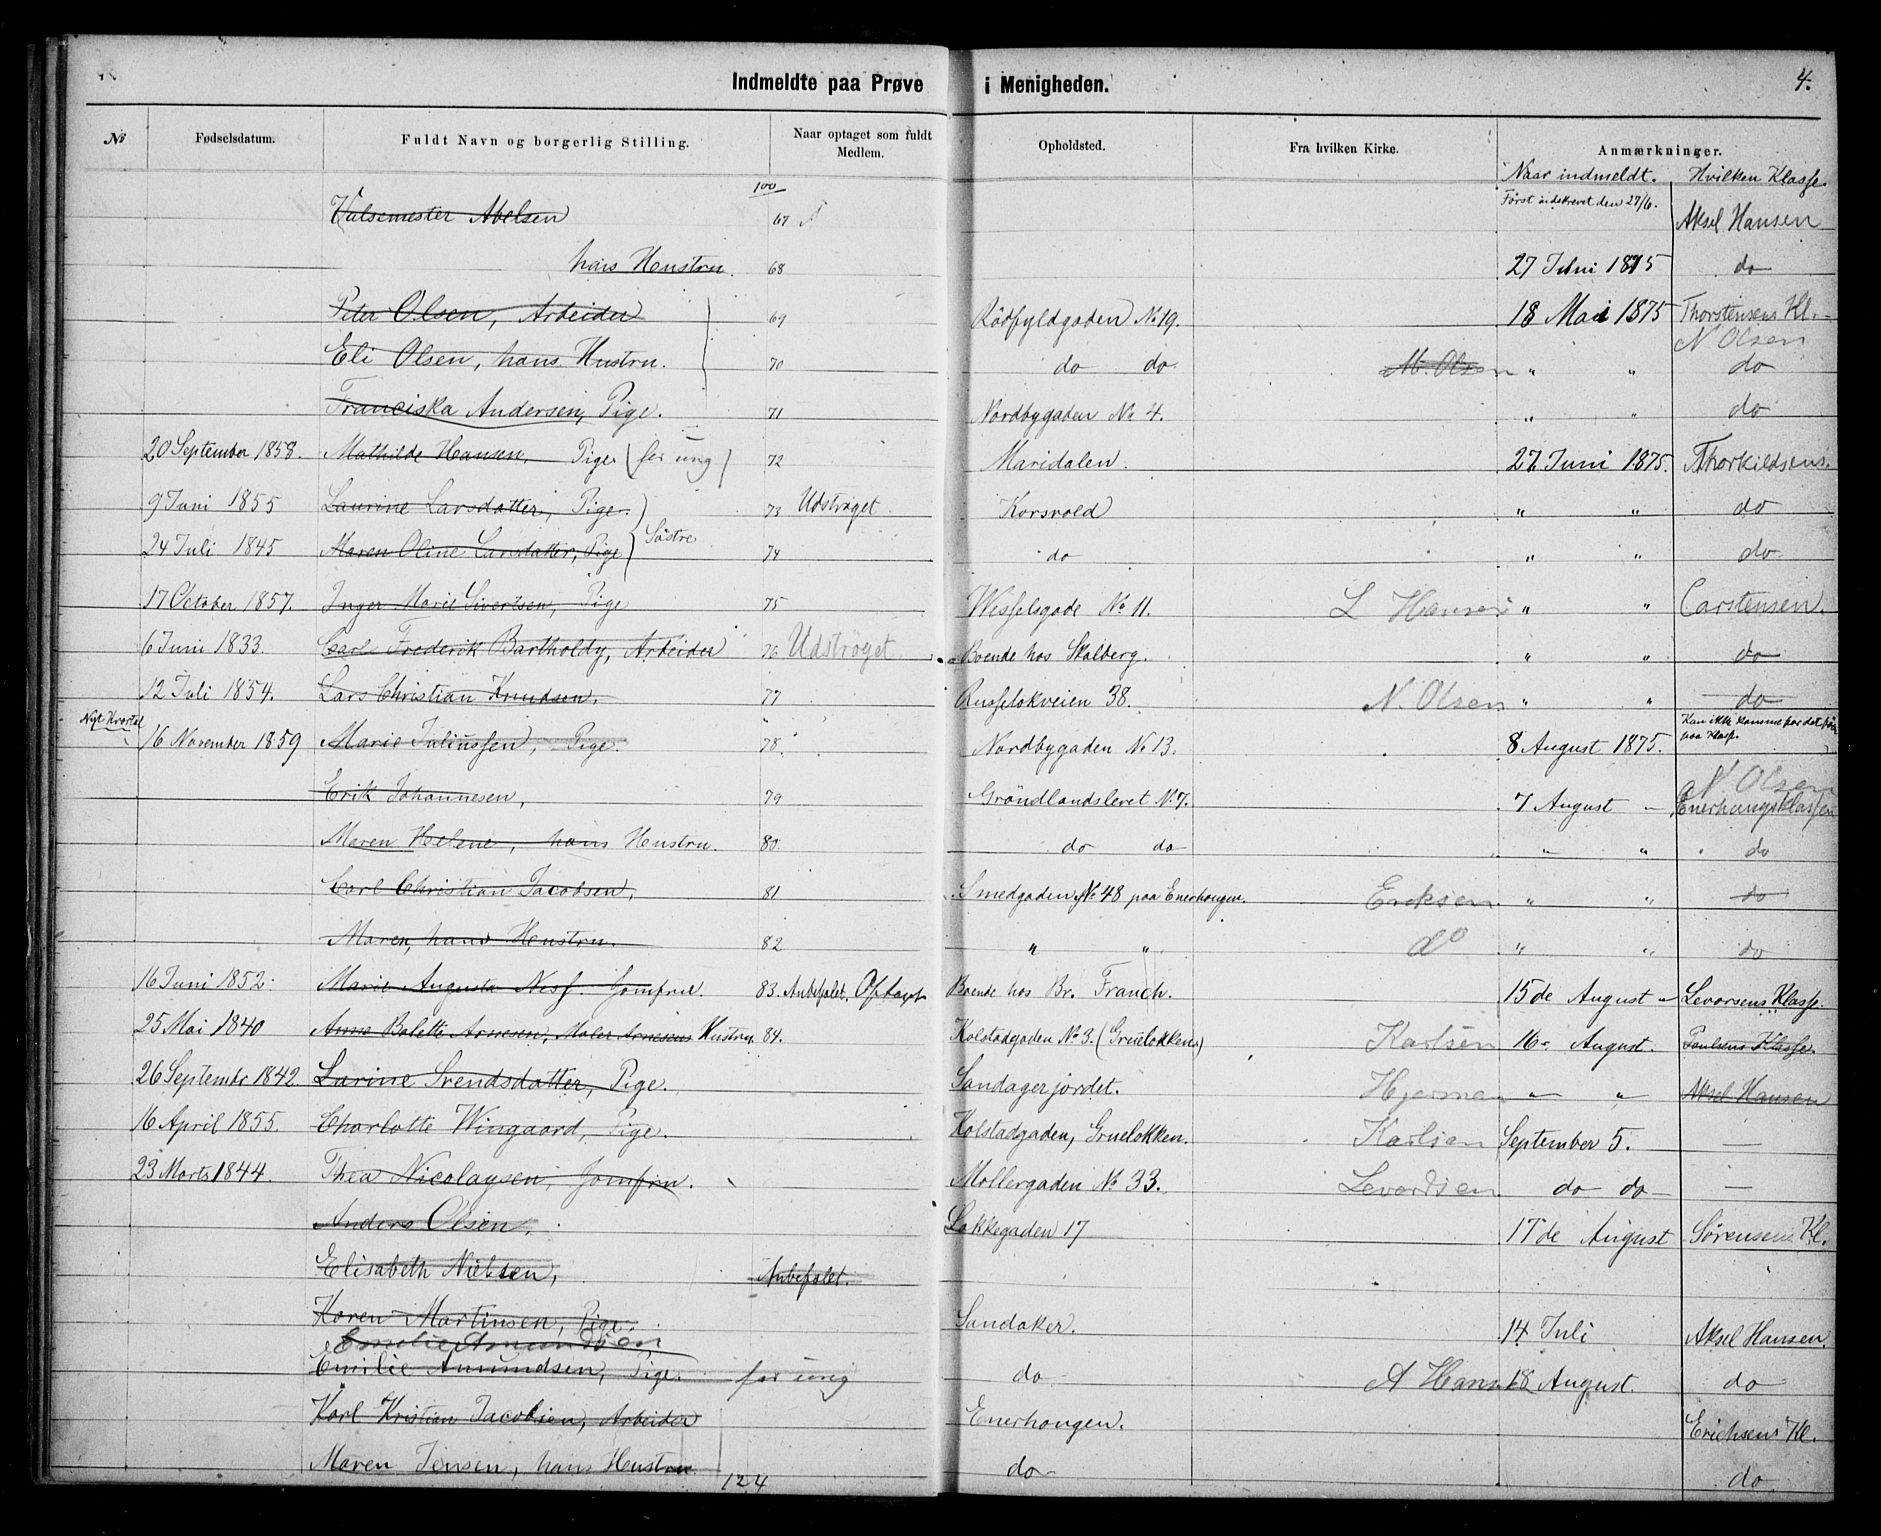 Indmeldte paa Prøve i Menigheden. 4.
No Fødselsdatum. Fuldt Navn og borgerlig Stilling. Naar optaget som fuldt Medlem. Opholdsted. Fra hvilken Kirke. Anmærkninger.
Naar indmeldt. Hvilken Klasse.
100
Valsemester Abelsen 67 Først indskrevet den 27/6. Aksel Hansen
hans Hustru. 68 27 Juni 1875 do
Peter Olsen, Arbeider 69 Rödfyldgaden No 19. 18 Mai 1875 Thorstensens Kl.
N Olsen
Eli Olsen, hans Hustru. 70 do do M. Olsen " " do
Franciska Andersen, Pige. 71 Nordbygaden No 4. " " do
20 September 1858. Mathilde Hansen, Pige (for ung) 72 Maridalen. 27 Juni 1875. Thorkildsens.
9 Juni 1855 Laurine Larsdatter, Pige. 73 Udströget Korsvold " " do
Söstre
24 Juli 1845 Maren Oline Larsdatter, Pige 74 do " " do
17 October 1857. Inger Marie Sivertsen, Pige 75 Wesselsgade No 11. L Hansen " " Carstensen.
6 Juni 1833. Carl Frederik Bartholdy, Arbeider 76 Udströget Boende hos Skalberg. " " do
12 Juli 1854. Lars Christian Knudsen. 77 Russelokveien 38. N. Olsen " " do
Nyt Kvartal Kan ikke komme paa Klasse.
16 November 1859 Marie Juliussen, Pige. 78. Nordbygaden No 13. 8 August 1875.
N Olsen
Erik Johannesen, 79 Gröndlandsleret No 7. 7 August - Enerhaugsklassen
Maren Helene, hans Hustru. 80. do do " " do
Carl Christian Jacobsen, 81 Smedgaden No 48 paa Enerhougen. Eriksen " " do
Maren, hans Hustru. 82 " " do " " do
16 Juni 1852. Marie Augusta Ness. Jomfru. 83. Anbefalet, Optaget Boende hos Br. Franch. 15 de August " Levorsens Klasse.
25 Mai 1840 Anne Bolette Arnesen, Maler Arnesens Hustru. 84. Kolstadgaden No 3. (Gruelokken) Karlsen 16 - August. Paulsens Klasse.
26 Septembr 1842. Larine Svendsdatter, Pige. Sandagerjordet. " " Aksel Hansen
16 April 1855. Charlotte Wingaard, Pige. Kolstadgaden, Gruelokken. Karlsen September 5. —
23 Marts 1844. Thea Nicolaysen, Jomfru. Mollergaden No 33. Levordsen do do —
Anders Olsen, Lokkegaden 17 17 de August Sørensens Kl.
Elisabeth Nielsen, Anbefalet.
Karen Martinsen, Pige. Sandaker. 14 Juli Aksel Hansen.
Emelie Amundsen
Emilie Amundsen, Pige. for ung do A Hansen 18 August. do
Karl Kristian Jacobsen, Arbeider Enerhougen. Erichsens Kl.
Maren Jensen, hans Hustru 124 do do.